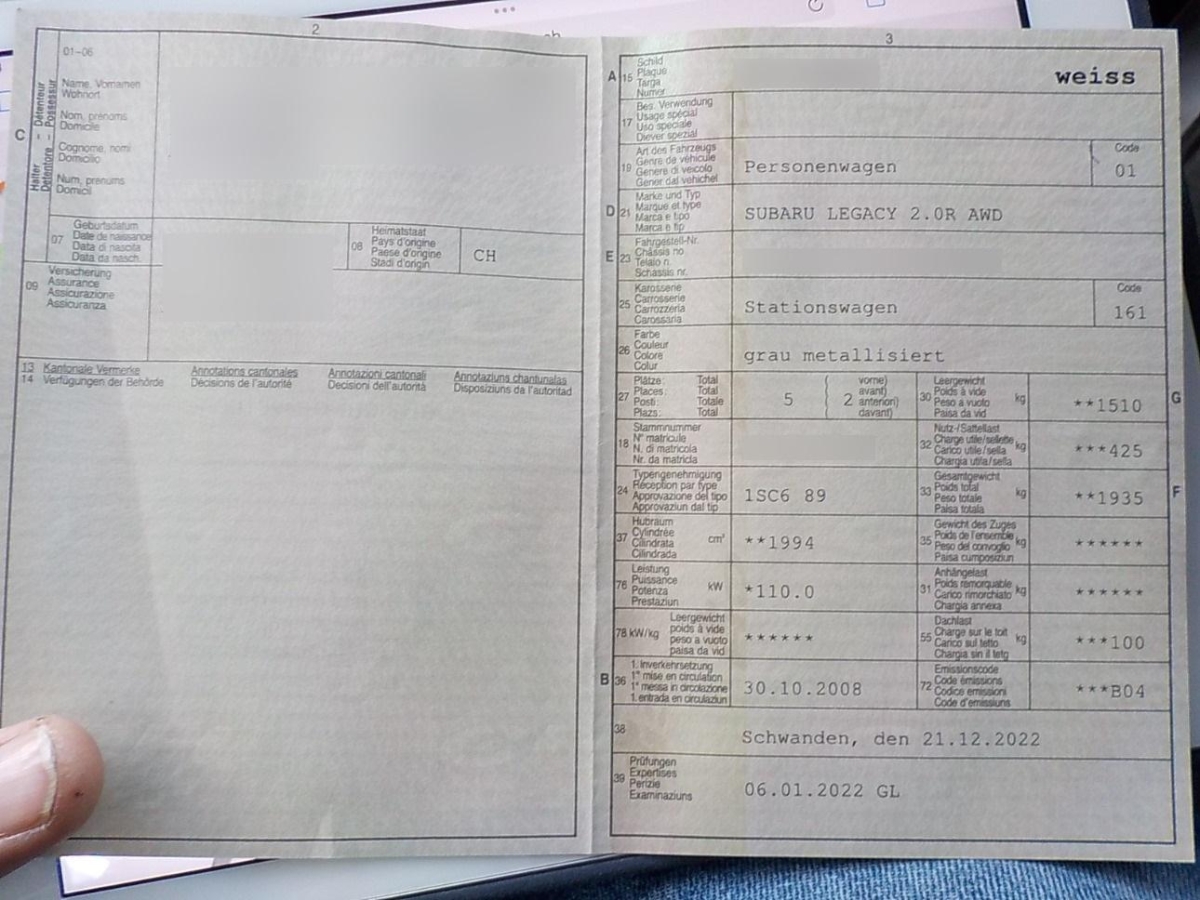 2
01-06
Halter – Détenteur
Detentore – Possessur
C
Name, Vornamen
Wohnort
Nom, prénoms
Domicile
Cognome, nomi
Domicilio
Num, prenums
Domicil
07
Geburtsdatum
Date de naissance
Data di nascita
Data da nasch.
08
Heimatstaat
Pays d'origine
Paese d'origine
Stadi d'origin
CH
09
Versicherung
Assurance
Assicurazione
Assicuranza
13 Kantonale Vermerke Annotations cantonales Annotazioni cantonali Annotaziuns chantunalas
14 Verfügungen der Behörde Décisions de l'autorité Decisioni dell'autorità Disposiziuns da l'autoritad
3
A 15
Schild
Plaque
Targa
Numer
weiss
17
Bes. Verwendung
Usage spécial
Uso speciale
Diever spezial
19
Art des Fahrzeugs
Genre de véhicule
Genere di veicolo
Gener dal vehichel
Personenwagen
Code
01
D 21
Marke und Typ
Marque et type
Marca e tipo
Marca e tip
SUBARU LEGACY 2.0R AWD
E 23
Fahrgestell-Nr.
Châssis no
Telaio n.
Schassis nr.
25
Karosserie
Carrosserie
Carrozzeria
Carossaria
Stationswagen
Code
161
26
Farbe
Couleur
Colore
Colur
grau metallisiert
27
Plätze: Total
Places: Total
Posti: Totale
Plazs: Total
5
2
vorne)
avant)
anteriori)
davant)
30
Leergewicht
Poids à vide
Peso a vuoto
Paisa da vid
kg
**1510
G
18
Stammnummer
N° matricule
N. di matricola
Nr. da matricla
32
Nutz-/Sattellast
Charge utile/sellette
Carico utile/sella
Chargia utila/sella
kg
***425
24
Typengenehmigung
Réception par type
Approvazione del tipo
Approvaziun dal tip
1SC6 89
33
Gesamtgewicht
Poids total
Peso totale
Paisa totala
kg
**1935
F
37
Hubraum
Cylindrée
Cilindrata
Cilindrada
cm³
**1994
35
Gewicht des Zuges
Poids de l'ensemble
Peso del convoglio
Paisa cumposiziun
kg
******
76
Leistung
Puissance
Potenza
Prestaziun
kW
*110.0
31
Anhängelast
Poids remorquable
Carico rimorchiato
Chargia annexa
kg
******
78 kW/kg
Leergewicht
poids à vide
peso a vuoto
paisa da vid
******
55
Dachlast
Charge sur le toit
Carico sul tetto
Chargia sin il tetg
kg
***100
B 36
1. Inverkehrsetzung
1re mise en circulation
1a messa in circolazione
1. entrada en circulaziun
30.10.2008
72
Emissionscode
Code émissions
Codice emissioni
Code d'emissiuns
***B04
38
Schwanden, den 21.12.2022
39
Prüfungen
Expertises
Perizie
Examinaziuns
06.01.2022 GL